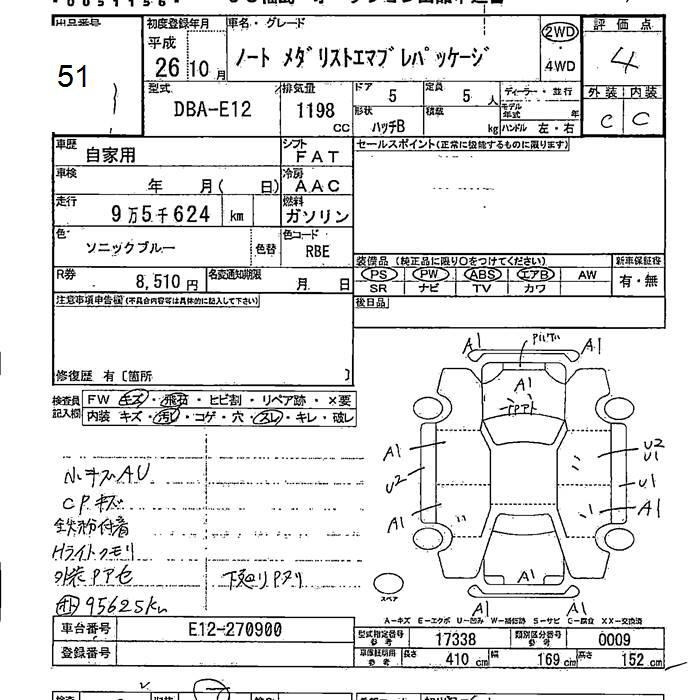 出品番号
51
初度登録年月
平成
26 10 月
車名・グレード
ノート メダリストエマブレパッケージ
2WD
・4WD
評価点
4
外装 内装
C C
型式
DBA-E12
排気量
1198
CC
ドア
5
定員
5 人
形状
ハッチB
積載
kg
ディーラー・並行
モデル年式 年
ハンドル 左・右
車歴
自家用
シフト
FAT
セールスポイント(正常に機能するものに限ります)
車検
年 月( 日)
冷房
AAC
走行
9万5千624 km
燃料
ガソリン
色
ソニックブルー
色替
色コード
RBE
R券
8,510円
名変通知期限
月 日
装備品(純正品に限り○をつけてください)
PS PW ABS エアB AW
SR ナビ TV カワ
新車保証書
有・無
後日品
注意事項申告欄(不具合内容等は具体的に記入して下さい)
修復歴 有〔箇所 〕
検査員記入欄
FW キズ・飛石・ヒビ割・リペア跡・×要
内装 キズ・汚レ・コゲ・穴・スレ・キレ・破レ
小キズAU
CPキズ
鉄粉付着
Hライトクモリ
外装PPア色
下廻りPサリ
95625km
A1 A1
A1
A1
U2
A1
U2
U1
U1
A1
A1
A1 A1
スペア
A-キズ E-エクボ U-凹み W-補修跡 S-サビ C-腐食 XX-交換済
車台番号
E12-270900
登録番号
型式指定番号 参考
17338
類別区分番号 参考
0009
車庫証明用 参考
長さ 410 cm
幅 169 cm
高さ 152 cm